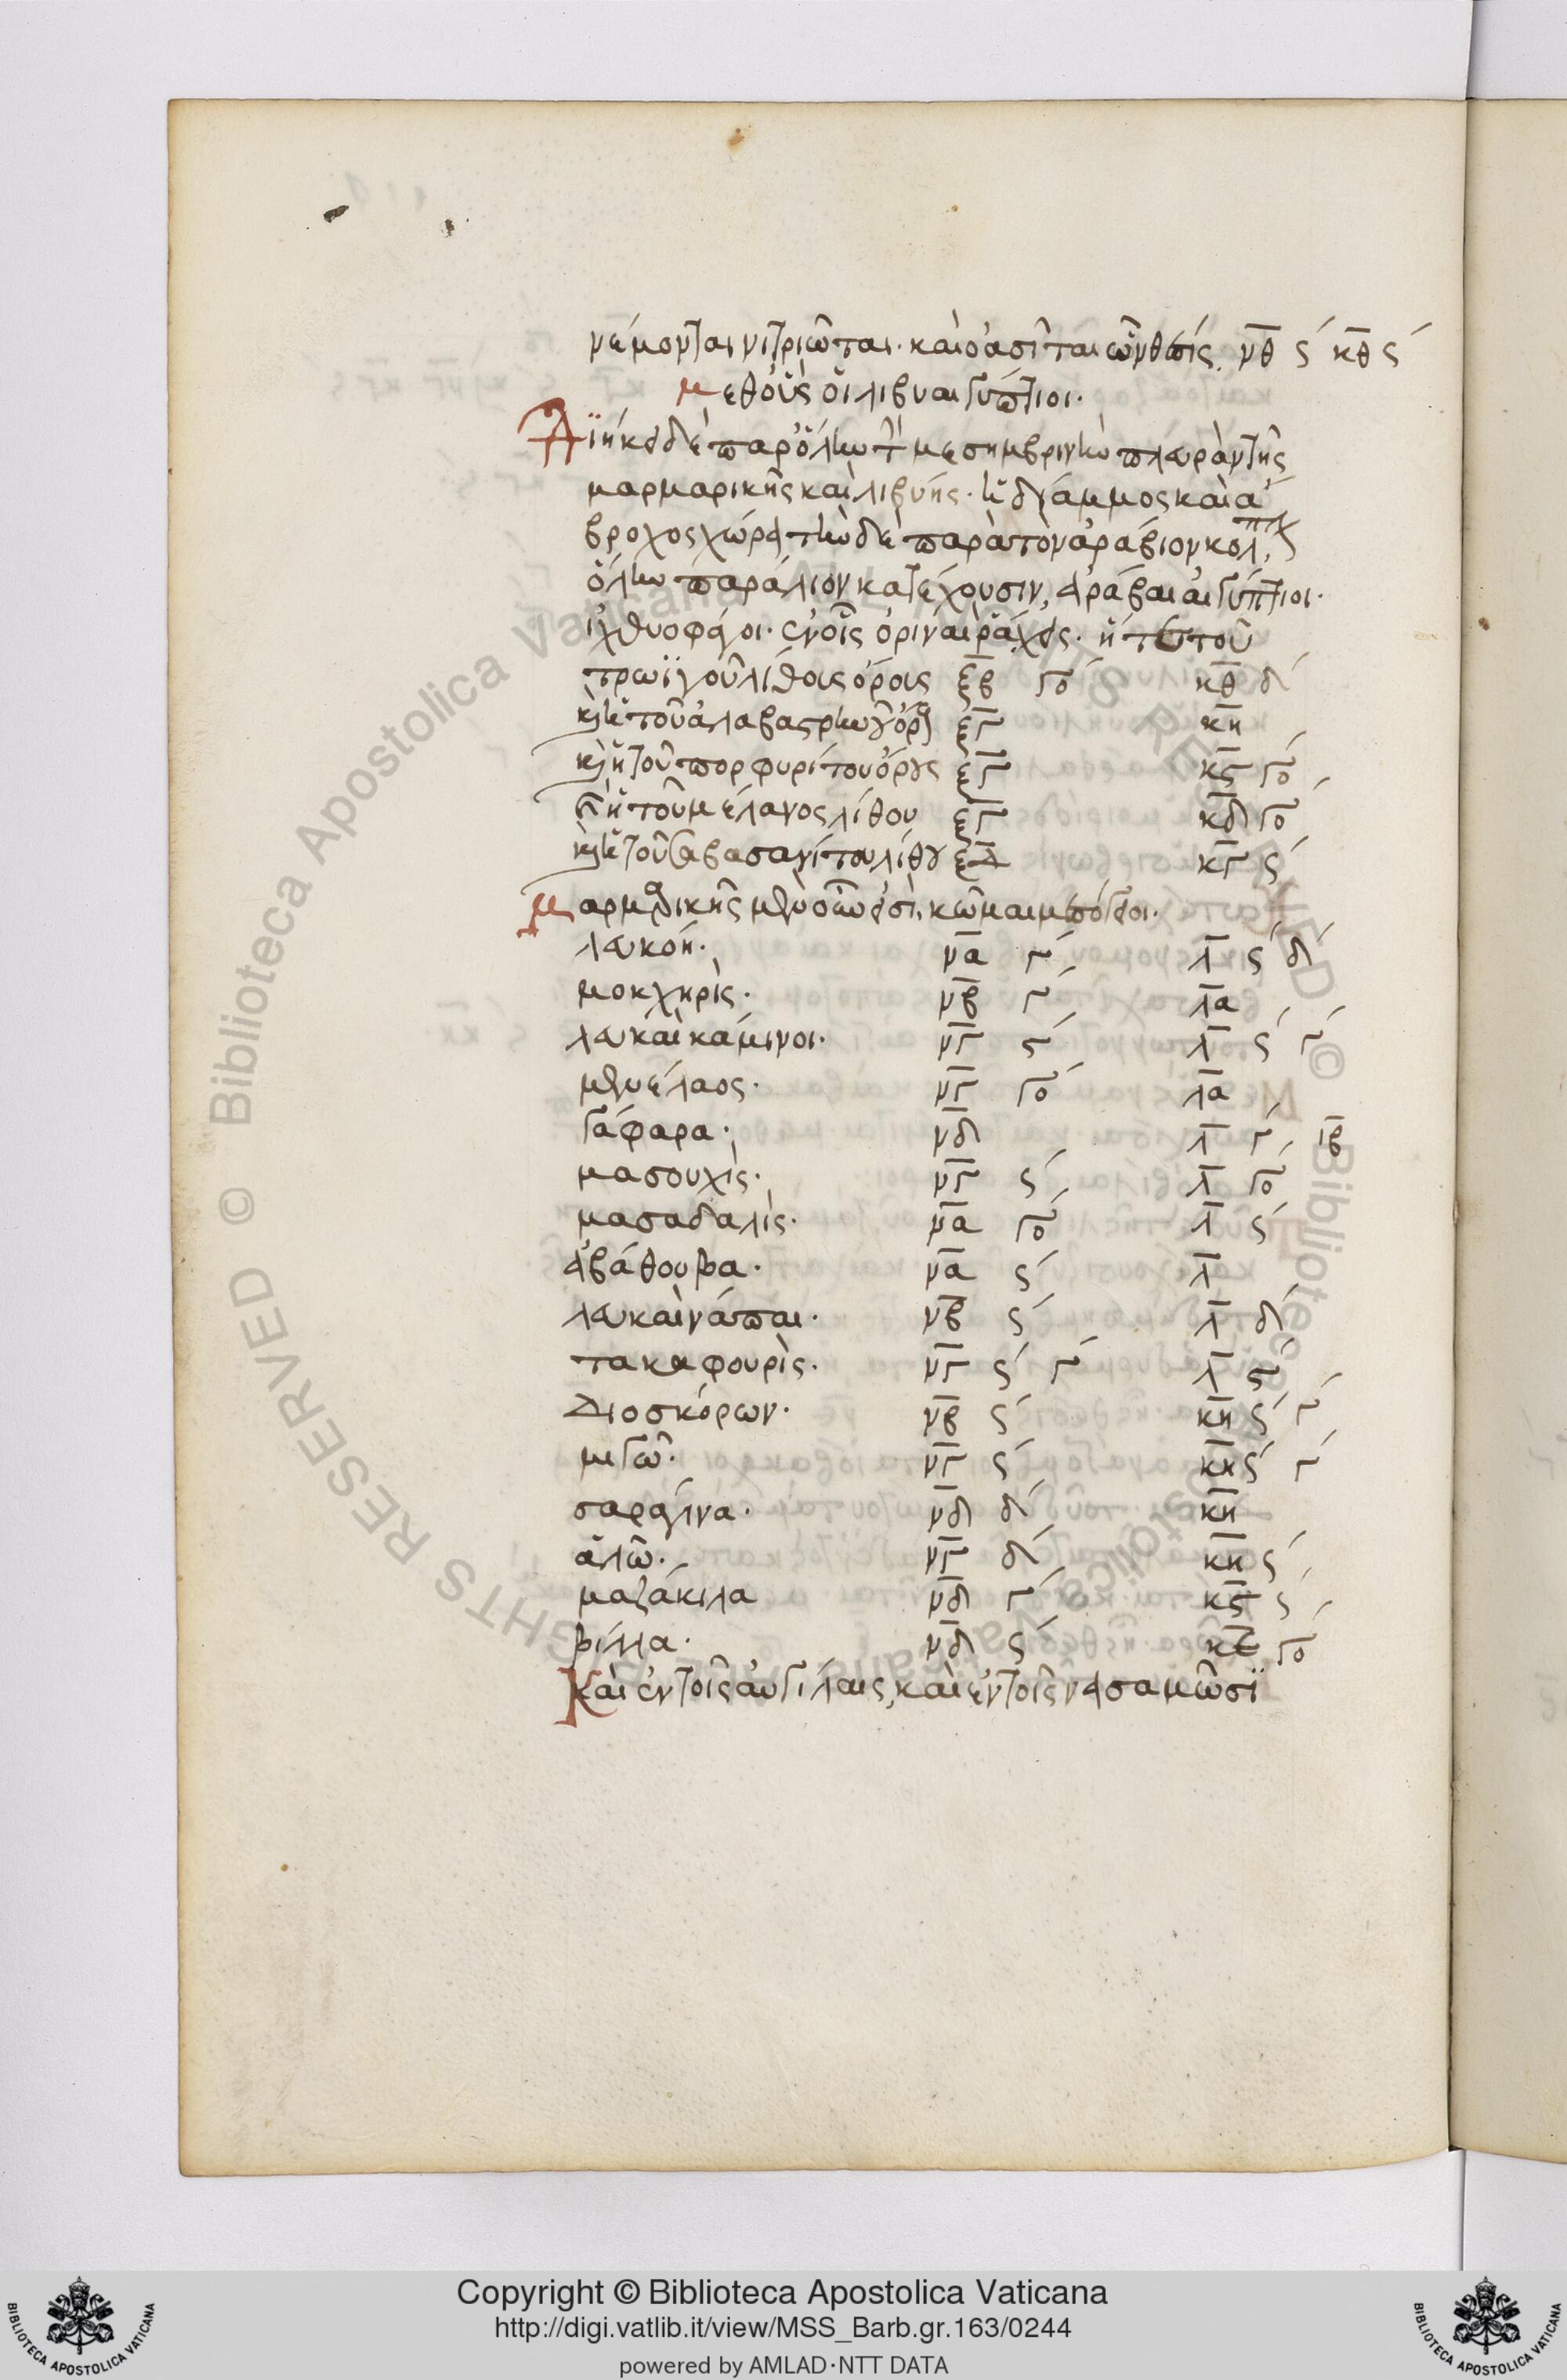 νέμονται νιτριῶται· καὶ ὀασῖται ὧν θέσις. ν̅θ̅ ς´ κ̅θ̅ ς´
μεθ οὓς οἱ λιβυαιγύπτιοι·
παρ ὅλην τ μεσημβρινὴν πλευρὰν τῆς
μαρμαρικῆς καὶ λιβύης· ἡ διάμμος καὶ ἄ
βροχος χώρα τὴν δὲ παρὰ τὸν αράβιον κολπ
ὅλην παράλιον κατέχουσιν, ἀραβαιαιγύπτιοι·
ἰχθυοφάγοι· ἐν οἷς ὀριναὶ ῥάχεις· ἥ τε τοῦ
τρωϊγοῦ λίθους ὄρους ξ̅β̅ γο´ κ̅θ̅ δ´
κ ἡ τοῦ ἀλαβαστρηνοῦ ὄρους ξ̅γ̅ κ̅η̅
κ ἡ τοῦ πορφυρίτου ὄρους ξ̅γ̅ κ̅ς̅ γο´
κ ἡ τοῦ μέλανος λίθου ξ̅γ̅ κ̅δ̅ γο´
κ ἡ τοῦ βασανίτου λίθου ξ̅δ̅ κ̅γ̅ ς´
μαρμαρικῆς μὲν οὖν εἰσὶ, κῶμαι μεσόγειοι·
λευκόη· ν̅α̅ γ´ λ̅ ς´ δ´
μοκχηρὶς· ν̅β̅ γ´ λ̅α̅
λευκαὶ κάμινοι· ν̅γ̅ ϛ´ λ̅ ς´ γ´
μενέλαος· ν̅γ̅ γο´ λ̅α̅
γάφαρα· ν̅δ̅ λ̅ γ´ ι̅β̅
μασουχὶς· ν̅γ̅ ς´ λ̅ γο´
μασαδαλὶς· ν̅α̅ γο´ λ̅ ς´
ἀβάθουβα· ν̅α̅ ς´ λ̅
λευκαὶ νάπαι· ν̅β̅ ς´ λ̅ δ´
τακαφουρὶς· ν̅γ̅ ς´ γ´ λ̅ ϛ´
Διοσκόρων· ν̅β̅ ς´ κ̅η̅ ς´ γ´
μιγῶ· ν̅γ̅ ς´ κ̅η̅ ς´ γ´
σαραγίνα· ν̅δ̅ δ´ κ̅η̅
ἀλῶ· ν̅γ̅ δ´ κ̅η̅ ς´
μαζάκιλα ν̅δ̅ γ´ κ̅ς̅ ς´
βίλλα· ν̅δ̅ ς´ κ̅ζ̅ γο´
Καὶ ἐν τοῖς αὐγίλαις, καὶ ἐν τοῖς νασαμῶσι
Copyright © Biblioteca Apostolica Vaticana
http://digi.vatlib.it/view/MSS_Barb.gr.163/0244
powered by AMLAD·NTT DATA
BIBLIOTECA APOSTOLICA VATICANA
BIBLIOTECA APOSTOLICA VATICANA